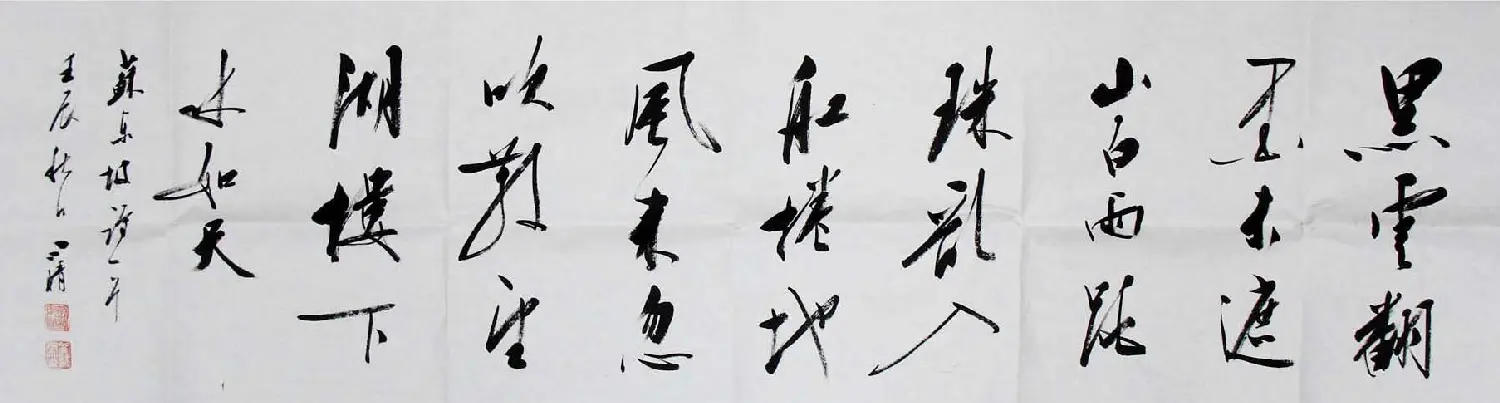 黑雲翻
墨未遮
山白雨跳
珠亂入
船捲地
風来忽
吹散望
湖樓下
水如天
蘇東坡詩一首
壬辰秋日